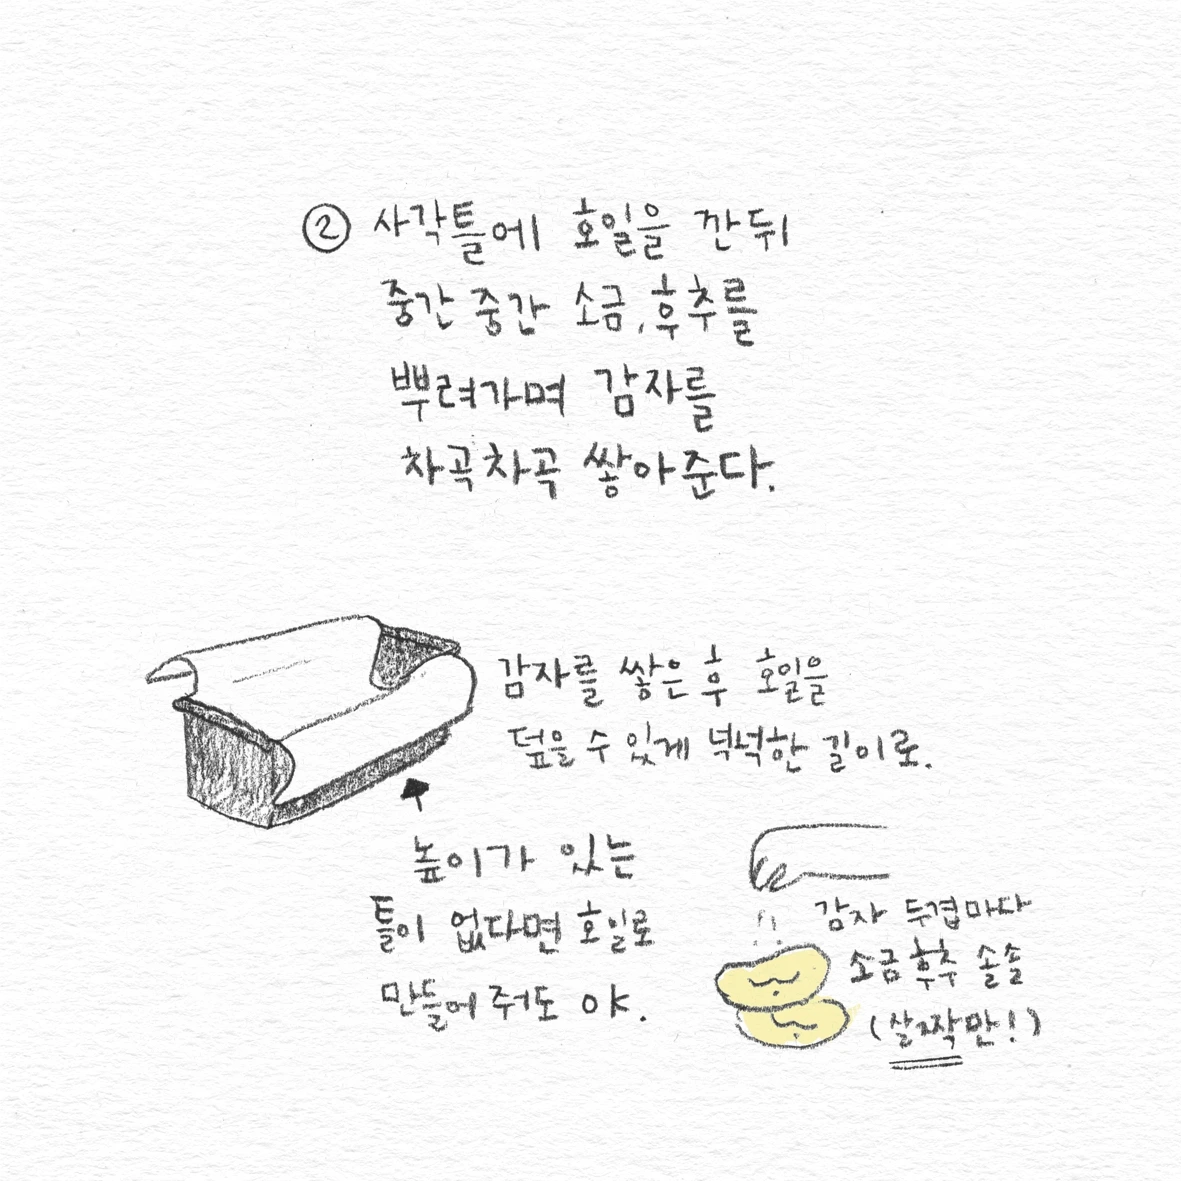 ② 사각틀에 호일을 깐 뒤
중간 중간 소금, 후추를
뿌려가며 감자를
차곡차곡 쌓아준다.
감자를 쌓은 후 호일을
덮을 수 있게 넉넉한 길이로.
높이가 있는
틀이 없다면 호일로
만들어 줘도 OK.
감자 두겹마다
소금 후추 솔솔
(살짝만!)